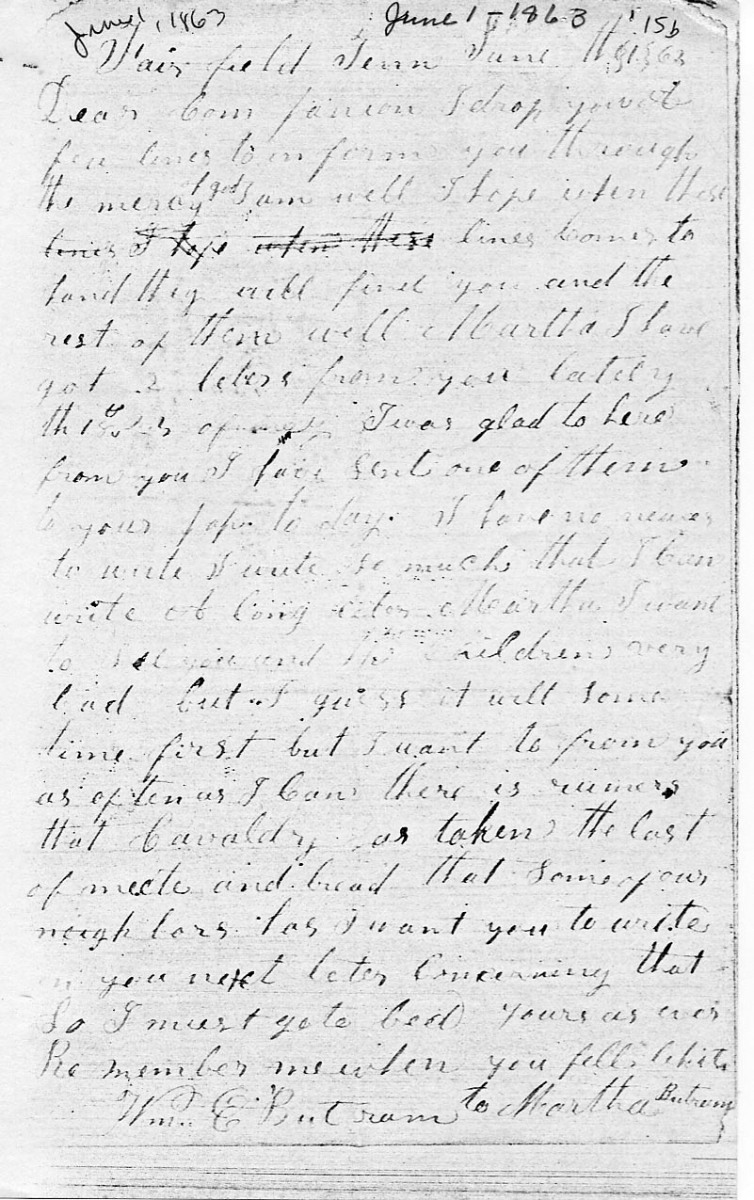 June 1, 1863 June 1 - 1863 15b
Fair field Tenn June th 1 1863
Dear Com panion I drop you A
few lines to in form you through
the mercy of god I am well I hope when these
lines I hope when these lines Comes to
hand they will find you and the
rest of them well Martha I have
got 2 leters from you lately
th 18 & 23 of may I was glad to here
from you I have Sent one of them
to your papa to day I have no newes
to write I write so much that I Can
write A long leter Martha I want
to see you and the Children very
bad but I guess it will Some
time first but I want to from you
as often as I Can there is rumers
that Cavaldry as taken the last
of meete and bread that Some of your
neigh bors has I want you to write
in you next leter Concerning that
So I must go to bed yours as ever
Re member me when you
Wm. E Butram to Martha Butram